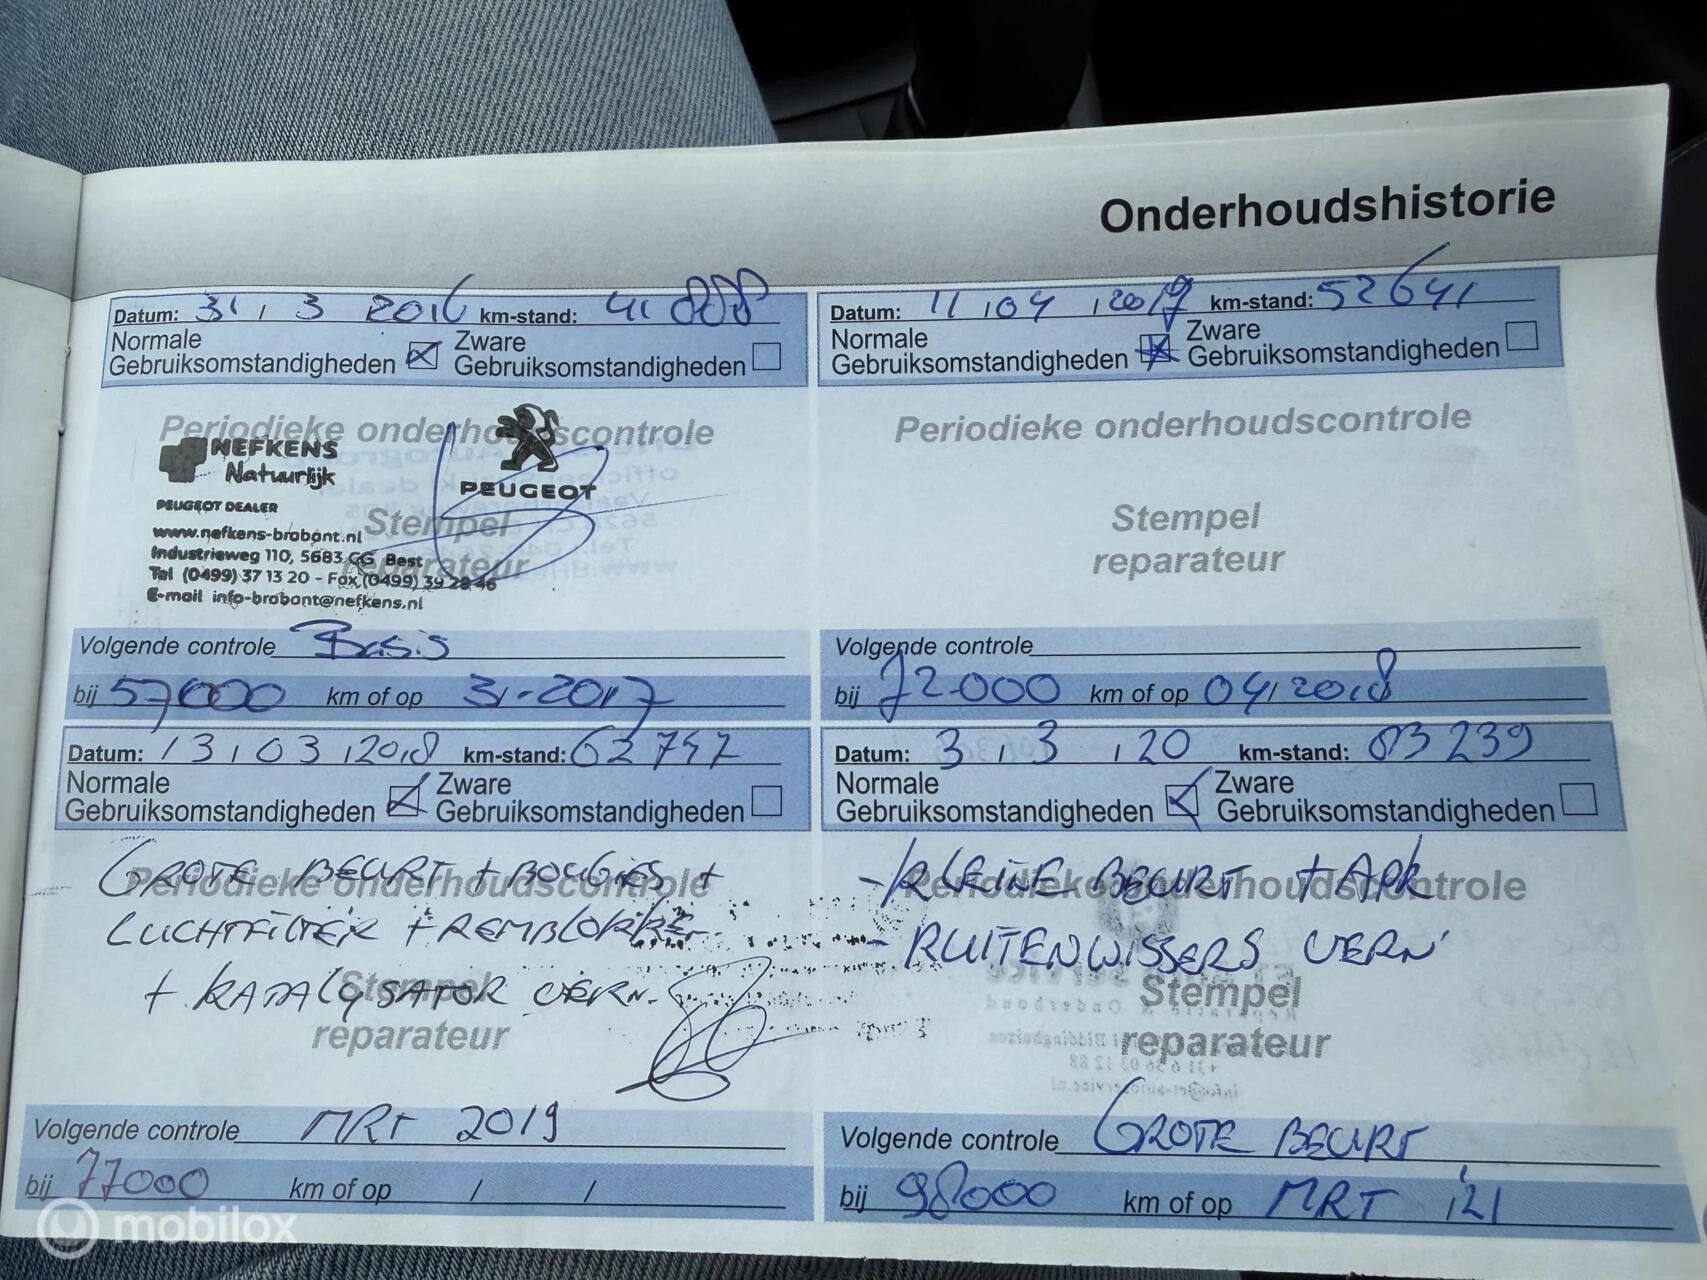 Onderhoudshistorie
Datum: 31 / 3 2016 km-stand: 41 888
Normale Gebruiksomstandigheden
Zware Gebruiksomstandigheden
Periodieke onderhoudscontrole
NEFKENS
Natuurlijk
PEUGEOT
PEUGEOT DEALER
Stempel
www.nefkens-brabant.nl
Industrieweg 110, 5683 CG Best
reparateur
Tel (0499) 37 13 20 - Fax (0499) 39 28 46
E-mail info-brabant@nefkens.nl
Volgende controle Basis
bij 57000 km of op 31-2017
Datum: 11 / 04 / 2017 km-stand: 52641
Normale Gebruiksomstandigheden
Zware Gebruiksomstandigheden
Periodieke onderhoudscontrole
Stempel
reparateur
Volgende controle
bij 72000 km of op 04/2018
Datum: 13 / 03 / 2018 km-stand: 62747
Normale Gebruiksomstandigheden
Zware Gebruiksomstandigheden
Periodieke onderhoudscontrole
GROTE BEURT + BOUGIES +
LUCHTFILTER + REMBLOKKEN
Stempel
+ KATALYSATOR VERN.
reparateur
Volgende controle MRT 2019
bij 77000 km of op / /
Datum: 3 / 3 / 20 km-stand: 83239
Normale Gebruiksomstandigheden
Zware Gebruiksomstandigheden
Periodieke onderhoudscontrole
- KLEINE BEURT + APK
- RUITENWISSERS VERN'
Stempel
reparateur
Volgende controle GROTE BEURT
bij 98000 km of op MRT '21
mobilox